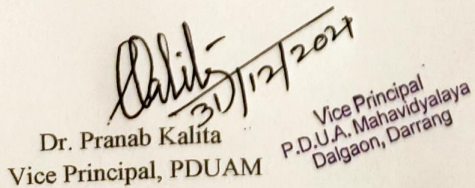 Kalita
31/12/2021
Dr. Pranab Kalita
Vice Principal, PDUAM
Vice Principal
P.D.U.A. Mahavidyalaya
Dalgaon, Darrang